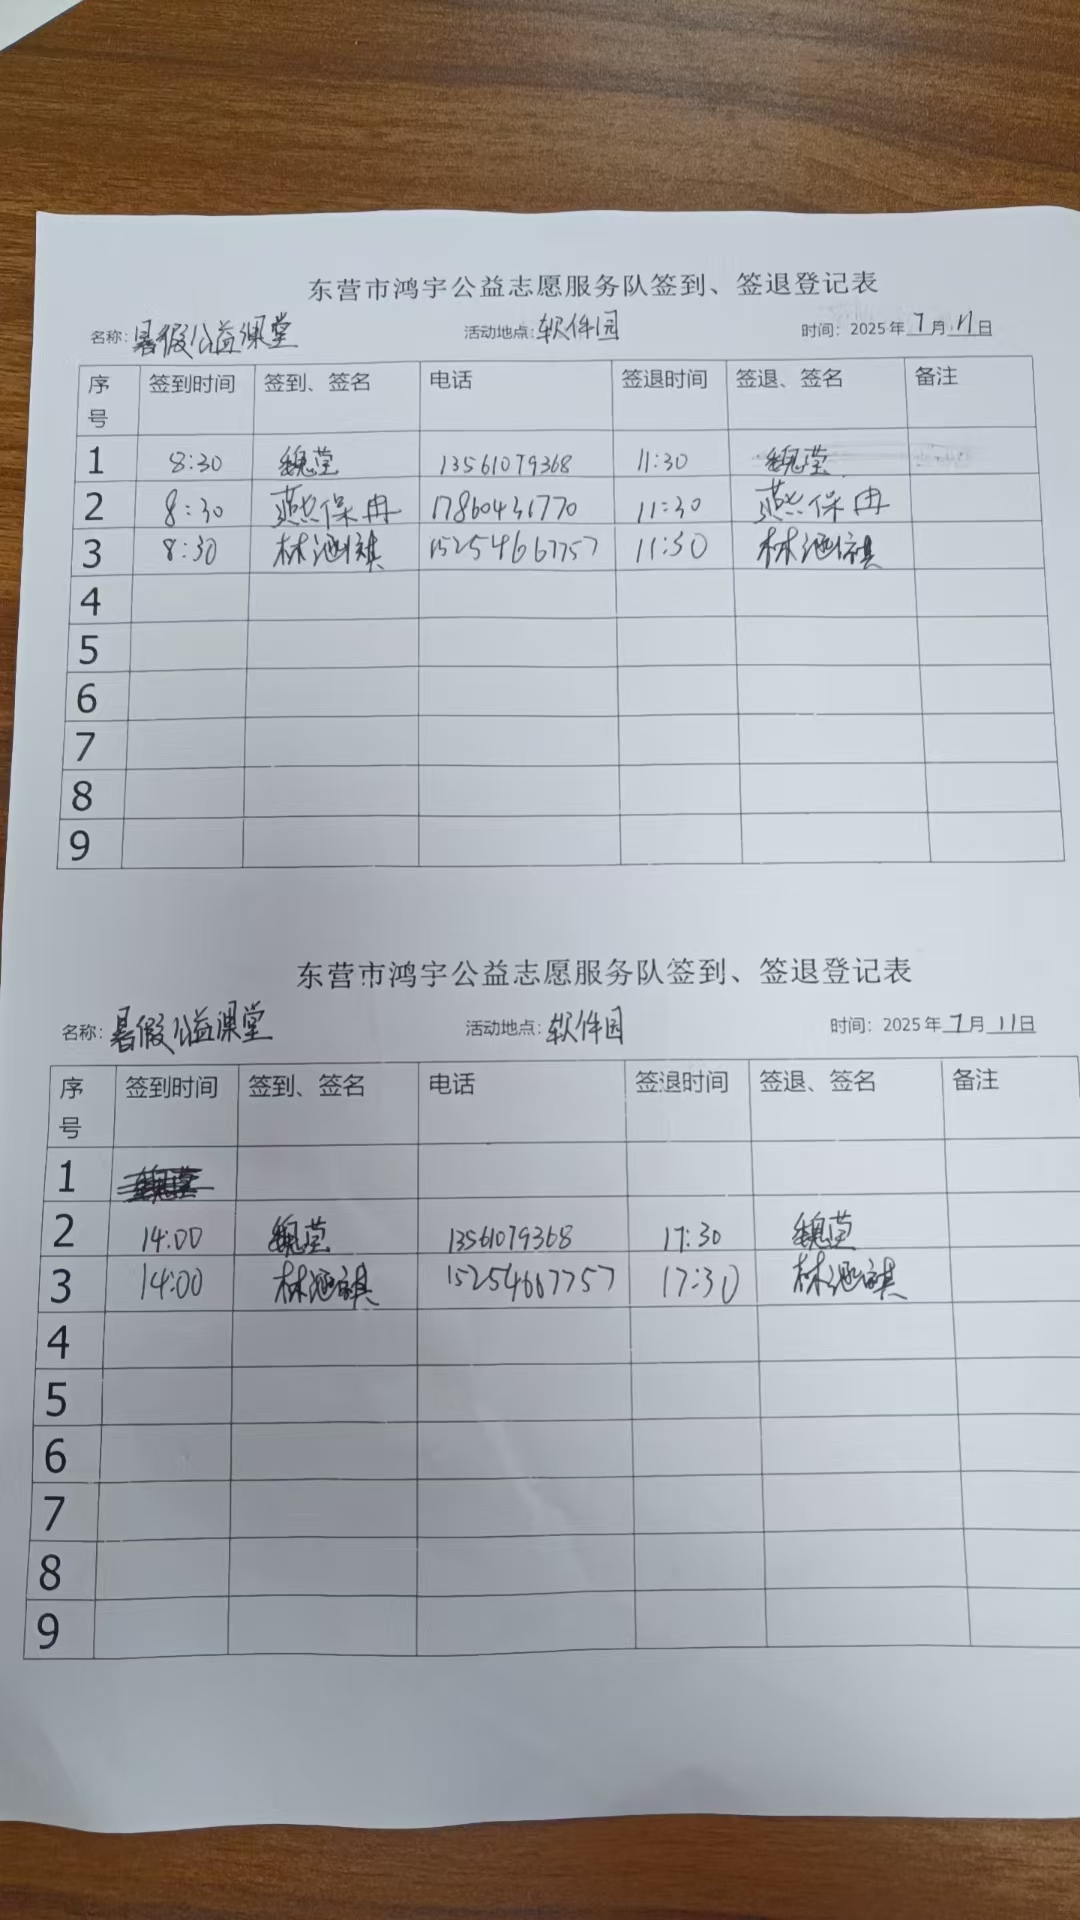 东营市鸿宇公益志愿服务队签到、签退登记表
名称：暑假公益课堂 活动地点：软件园 时间：2025年7月11日
序号 签到时间 签到、签名 电话 签退时间 签退、签名 备注
1 8:30 魏莹 13561079368 11:30 魏莹
2 8:30 燕保冉 17860431770 11:30 燕保冉
3 8:30 林 祺 15254667757 11:30 林 祺
4
5
6
7
8
9
东营市鸿宇公益志愿服务队签到、签退登记表
名称：暑假公益课堂 活动地点：软件园 时间：2025年7月11日
序号 签到时间 签到、签名 电话 签退时间 签退、签名 备注
1
2 14:00 魏莹 13561079368 17:30 魏莹
3 14:00 林 祺 15254667757 17:30 林 祺
4
5
6
7
8
9